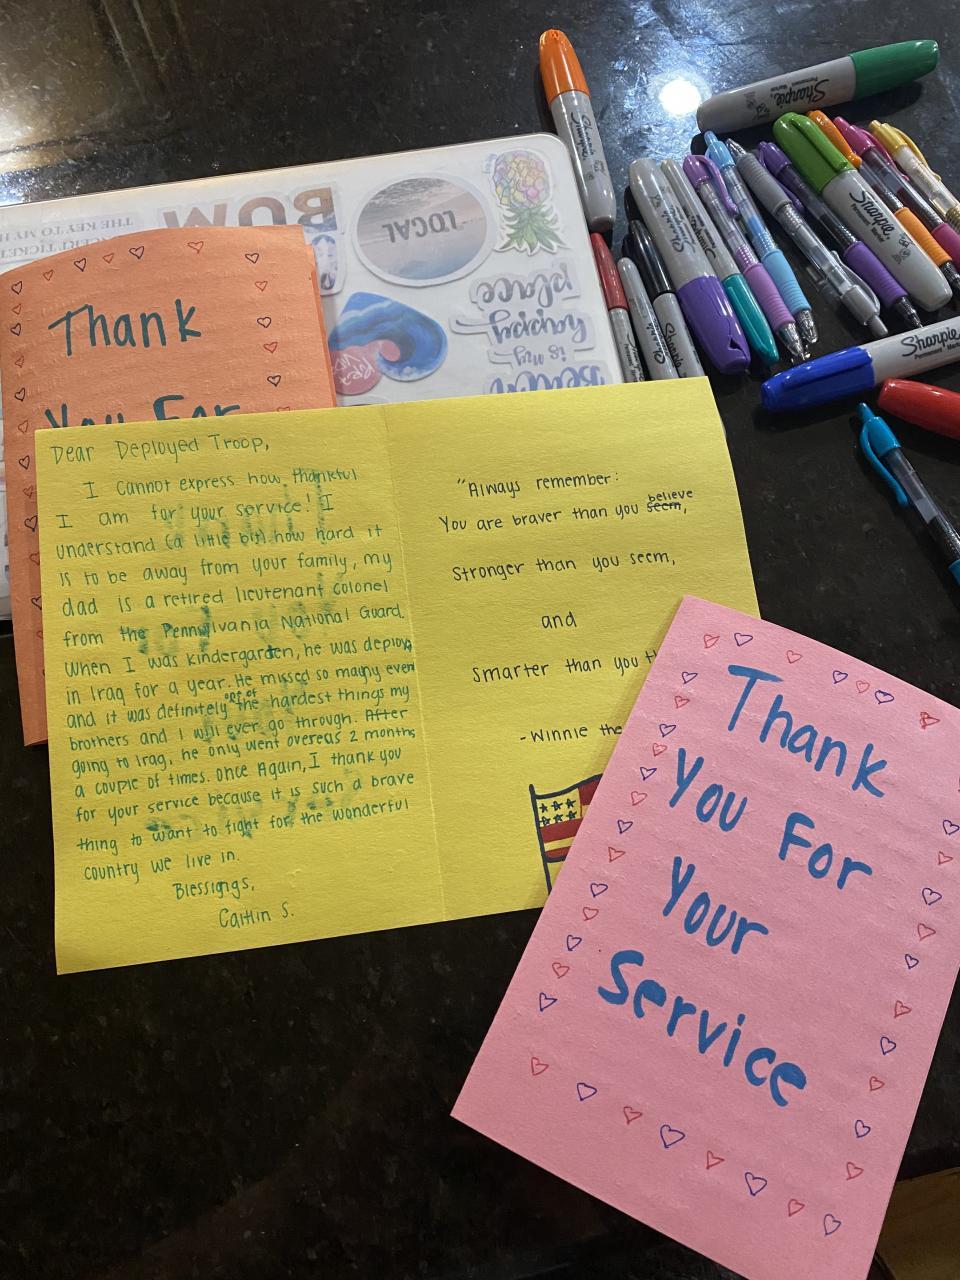 Thank
You For
Dear Deployed Troop,
I cannot express how thankful
I am for your service! I
understand (a little bit) how hard it
is to be away from your family, my
dad is a retired lieutenant colonel
from the Pennsylvania National Guard.
When I was kindergarten, he was deploy
in Iraq for a year. He missed so many even
and it was definitely one of the hardest things my
brothers and I will ever go through. After
going to Iraq, he only went overeas 2 months
a couple of times. Once Again, I thank you
for your service because it is such a brave
thing to want to fight for the wonderful
country we live in.
Blessings,
Caitlin S.
"Always remember:
You are braver than you seem believe,
stronger than you seem,
and
smarter than you th
-Winnie the
Thank
You For
Your
Service
BUM
THE KEY TO MY H
LOCAL
Beach
is my
happy
place
Sharpie
Sharpie
Sharpie
Sharpie
Permanent Marker